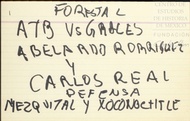 FORESTAL
ATB VS GAVLES
ABELARDO RODRIGUEZ
Y
CARLOS REAL
DEFENSA
MEZQUITAL Y XOCONOCTITLE